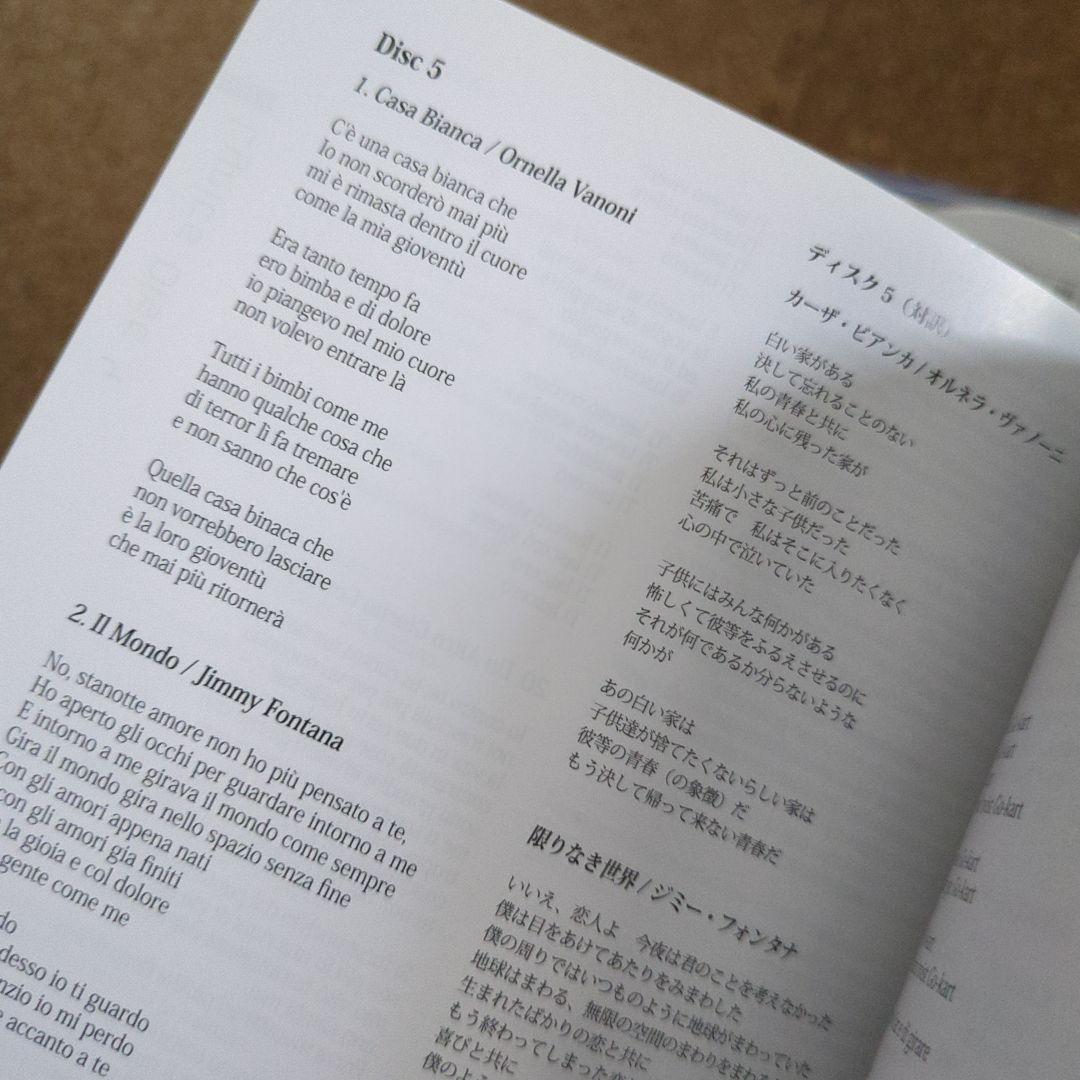 Disc 5
1. Casa Bianca / Ornella Vanoni
C'è una casa bianca che
Io non scorderò mai più
mi è rimasta dentro il cuore
come la mia gioventù
Era tanto tempo fa
ero bimba e di dolore
io piangevo nel mio cuore
non volevo entrare là
Tutti i bimbi come me
hanno qualche cosa che
di terror lì fa tremare
e non sanno che cos'è
Quella casa binaca che
non vorrebbero lasciare
è la loro gioventù
che mai più ritornerà
2. Il Mondo / Jimmy Fontana
No, stanotte amore non ho più pensato a te,
Ho aperto gli occhi per guardare intorno a me
E intorno a me girava il mondo come sempre
Gira il mondo gira nello spazio senza fine
Con gli amori appena nati
con gli amori gia finiti
la gioia e col dolore
gente come me
io ti guardo
io mi perdo
accanto a te
ディスク5（対訳）
カーザ・ビアンカ/オルネラ・ヴァノーニ
白い家がある
決して忘れることのない
私の青春と共に
私の心に残った家が
それはずっと前のことだった
私は小さな子供だった
苦痛で　私はそこに入りたくなく
心の中で泣いていた
子供にはみんな何かがある
怖しくて彼等をふるえさせるのに
それが何であるか分らないような
何かが
あの白い家は
子供達が捨てたくないらしい家は
彼等の青春（の象徴）だ
もう決して帰って来ない青春だ
限りなき世界/ジミー・フォンタナ
いいえ、恋人よ　今夜は君のことを考えなかった
僕は目をあけてあたりをみまわした
僕の周りではいつものように地球がまわっていた
地球はまわる、無限の空間のまわりをまわる
生まれたばかりの恋と共に
もう終わってしまった
喜びと共に
僕のよ
Go-kart
Go-kart